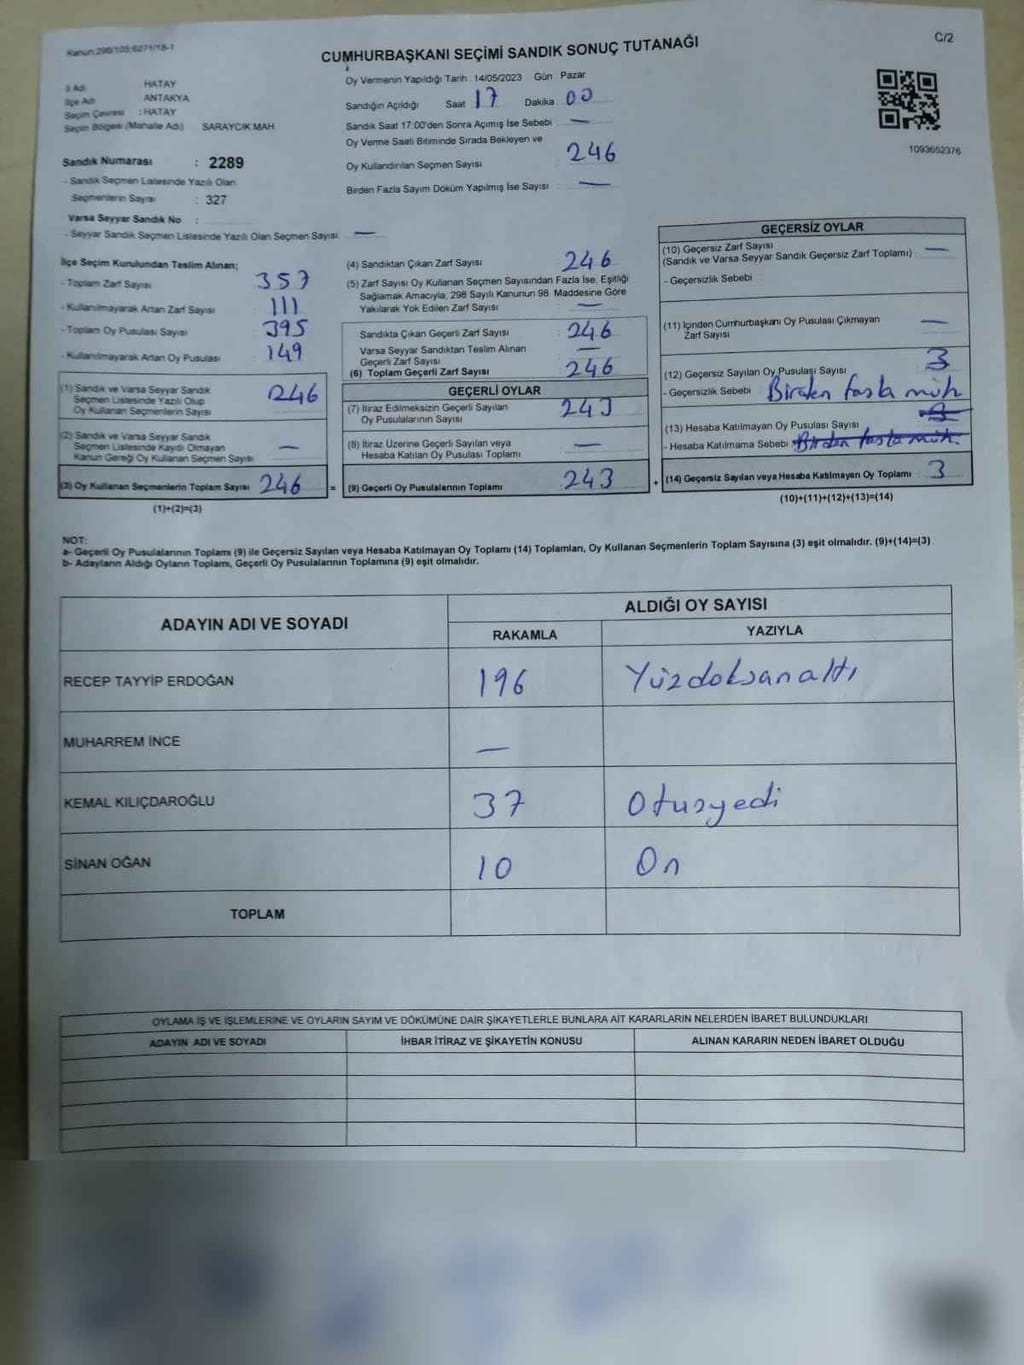 Kanun:298/105;6271/18-1
C/2
CUMHURBAŞKANI SEÇİMİ SANDIK SONUÇ TUTANAĞI
İl Adı HATAY
İlçe Adı ANTAKYA
Seçim Çevresi : HATAY
Seçim Bölgesi (Mahalle Adı) SARAYCIK MAH.
Oy Vermenin Yapıldığı Tarih : 14/05/2023 Gün Pazar
Sandığın Açıldığı Saat 17 Dakika 00
Sandık Saat 17:00'den Sonra Açımış İse Sebebi —
Oy Verme Saati Bitiminde Sırada Bekleyen ve
Oy Kullandırılan Seçmen Sayısı 246
Birden Fazla Sayım Döküm Yapılmış İse Sayısı —
1093652376
Sandık Numarası : 2289
- Sandık Seçmen Listesinde Yazılı Olan
Seçmenlerin Sayısı : 327
Varsa Seyyar Sandık No :
- Seyyar Sandık Seçmen Listesinde Yazılı Olan Seçmen Sayısı: —
İlçe Seçim Kurulundan Teslim Alınan;
- Toplam Zarf Sayısı 357
- Kullanılmayarak Artan Zarf Sayısı 111
- Toplam Oy Pusulası Sayısı 395
- Kullanılmayarak Artan Oy Pusulası 149
(1) Sandık ve Varsa Seyyar Sandık
Seçmen Listesinde Yazılı Olup
Oy Kullanan Seçmenlerin Sayısı 246
(2) Sandık ve Varsa Seyyar Sandık
Seçmen Listesinde Kayıtlı Olmayan
Kanun Gereği Oy Kullanan Seçmen Sayısı —
(3) Oy Kullanan Seçmenlerin Toplam Sayısı 246 =
(1)+(2)=(3)
(4) Sandıktan Çıkan Zarf Sayısı 246
(5) Zarf Sayısı Oy Kullanan Seçmen Sayısından Fazla İse, Eşitliği
Sağlamak Amacıyla, 298 Sayılı Kanunun 98. Maddesine Göre
Yakılarak Yok Edilen Zarf Sayısı —
Sandıkta Çıkan Geçerli Zarf Sayısı 246
Varsa Seyyar Sandıktan Teslim Alınan
Geçerli Zarf Sayısı —
(6) Toplam Geçerli Zarf Sayısı 246
GEÇERLİ OYLAR
(7) İtiraz Edilmeksizin Geçerli Sayılan
Oy Pusulalarının Sayısı 243
(8) İtiraz Üzerine Geçerli Sayılan veya
Hesaba Katılan Oy Pusulası Toplamı —
(9) Geçerli Oy Pusulalarının Toplamı 243 +
GEÇERSİZ OYLAR
(10) Geçersiz Zarf Sayısı
(Sandık ve Varsa Seyyar Sandık Geçersiz Zarf Toplamı) : —
- Geçersizlik Sebebi
(11) İçinden Cumhurbaşkanı Oy Pusulası Çıkmayan
Zarf Sayısı —
(12) Geçersiz Sayılan Oy Pusulası Sayısı 3
- Geçersizlik Sebebi Birden fasla müh
(13) Hesaba Katılmayan Oy Pusulası Sayısı 3
- Hesaba Katılmama Sebebi Birden fasla müh.
(14) Geçersiz Sayılan veya Hesaba Katılmayan Oy Toplamı 3
(10)+(11)+(12)+(13)=(14)
NOT:
a- Geçerli Oy Pusulalarının Toplamı (9) ile Geçersiz Sayılan veya Hesaba Katılmayan Oy Toplamı (14) Toplamları, Oy Kullanan Seçmenlerin Toplam Sayısına (3) eşit olmalıdır. (9)+(14)=(3)
b- Adayların Aldığı Oyların Toplamı, Geçerli Oy Pusulalarının Toplamına (9) eşit olmalıdır.
ADAYIN ADI VE SOYADI ALDIĞI OY SAYISI
RAKAMLA YAZIYLA
RECEP TAYYİP ERDOĞAN 196 Yüzdoksanaltı
MUHARREM İNCE —
KEMAL KILIÇDAROĞLU 37 Otuzyedi
SİNAN OĞAN 10 On
TOPLAM
OYLAMA İŞ VE İŞLEMLERİNE VE OYLARIN SAYIM VE DÖKÜMÜNE DAİR ŞİKAYETLERLE BUNLARA AİT KARARLARIN NELERDEN İBARET BULUNDUKLARI
ADAYIN ADI VE SOYADI İHBAR İTİRAZ VE ŞİKAYETİN KONUSU ALINAN KARARIN NEDEN İBARET OLDUĞU